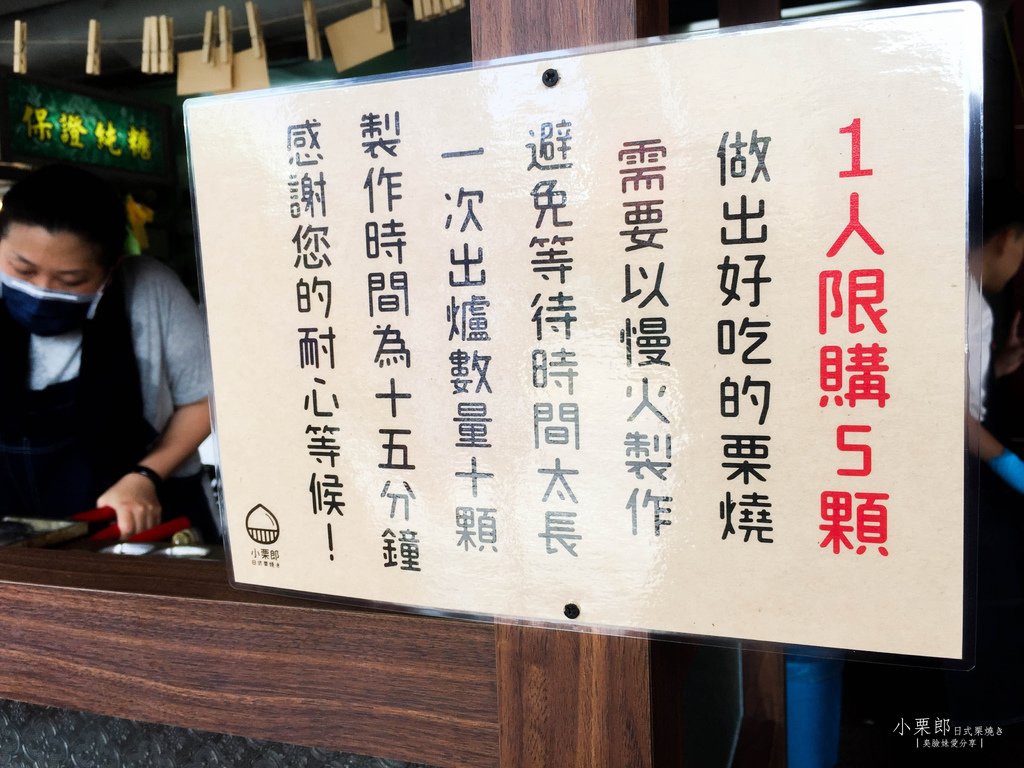 1人限購5顆
做出好吃的栗燒
需要以慢火製作
避免等待時間太長
一次出爐數量十顆
製作時間為十五分鐘
感謝您的耐心等候！
小栗郎
日式栗燒き
保證純糖
小栗郎日式栗燒き
|臭臉妹愛分享|